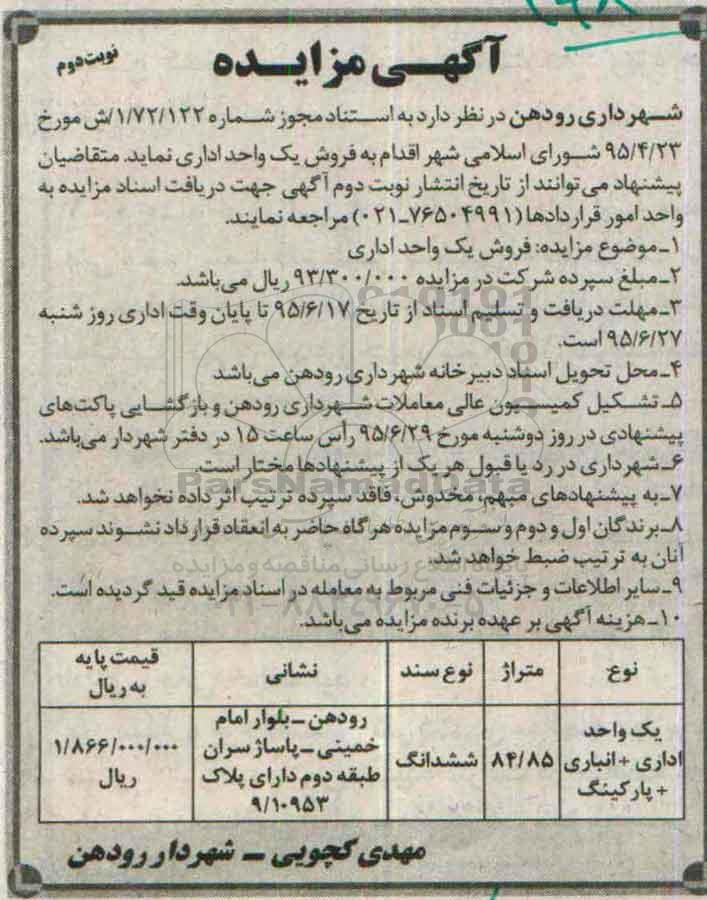 نوبت دوم
آگهی مزایده
شهرداری رودهن در نظر دارد به استناد مجوز شماره ۱/۷۲/۱۲۲/ش مورخ
۹۵/۴/۲۳ شورای اسلامی شهر اقدام به فروش یک واحد اداری نماید. متقاضیان
پیشنهاد می‌توانند از تاریخ انتشار نوبت دوم آگهی جهت دریافت اسناد مزایده به
واحد امور قراردادها (۷۶۵۰۴۹۹۱-۰۲۱) مراجعه نمایند.
۱-موضوع مزایده: فروش یک واحد اداری
۲-مبلغ سپرده شرکت در مزایده ۹۳/۳۰۰/۰۰۰ ریال می‌باشد.
۳-مهلت دریافت و تسلیم اسناد از تاریخ ۹۵/۶/۱۷ تا پایان وقت اداری روز شنبه
۹۵/۶/۲۷ است.
۴-محل تحویل اسناد دبیرخانه شهرداری رودهن می‌باشد
۵-تشکیل کمیسیون عالی معاملات شهرداری رودهن و بازگشایی پاکت‌های
پیشنهادی در روز دوشنبه مورخ ۹۵/۶/۲۹ رأس ساعت ۱۵ در دفتر شهردار می‌باشد.
۶-شهرداری در رد یا قبول هر یک از پیشنهادها مختار است.
۷-به پیشنهادهای مبهم، مخدوش، فاقد سپرده ترتیب اثر داده نخواهد شد.
۸-برندگان اول و دوم و سوم مزایده هرگاه حاضر به انعقاد قرارداد نشوند سپرده
آنان به ترتیب ضبط خواهد شد.
۹-سایر اطلاعات و جزئیات فنی مربوط به معامله در اسناد مزایده قید گردیده است.
۱۰-هزینه آگهی بر عهده برنده مزایده می‌باشد.
نوع	متراژ	نوع سند	نشانی	قیمت پایه به ریال
یک واحد اداری + انباری + پارکینگ	۸۴/۸۵	ششدانگ	رودهن -بلوار امام خمینی -پاساژ سران طبقه دوم دارای پلاک ۹/۱۰۹۵۳	۱/۸۶۶/۰۰۰/۰۰۰ ریال
مهدی کچویی - شهردار رودهن
ParsNamadData